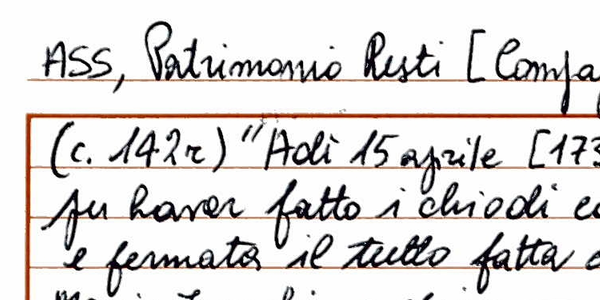 ASS, Patrimonio Resti [Compa
(c. 142r) "Adì 15 aprile [173
fu haver fatto i chiodi e
e fermata il tutto fatta